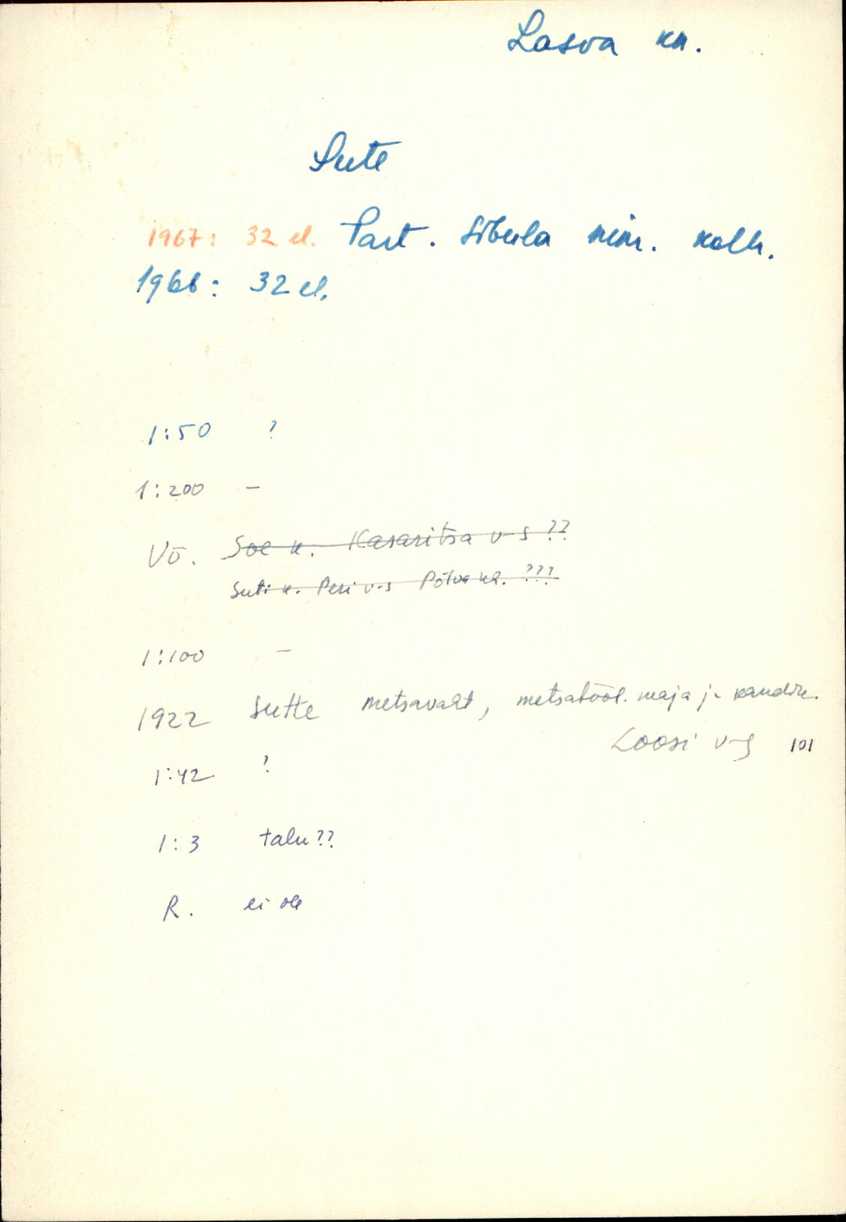 Lasva kn.
Sute
1967: 32 el. Part. Sibula nim. kolh.
1966: 32 el.
1:50 ?
1:200 –
Võ. Soe k. Kasaritsa v-s ??
Suti k. Peri v-s Põlva kh. ???
1:100 –
1922 Sutte metsavaht, metsatööl. maja j.
Loosi v-s 101
1:42 ?
1:3 talu??
R. ei ole